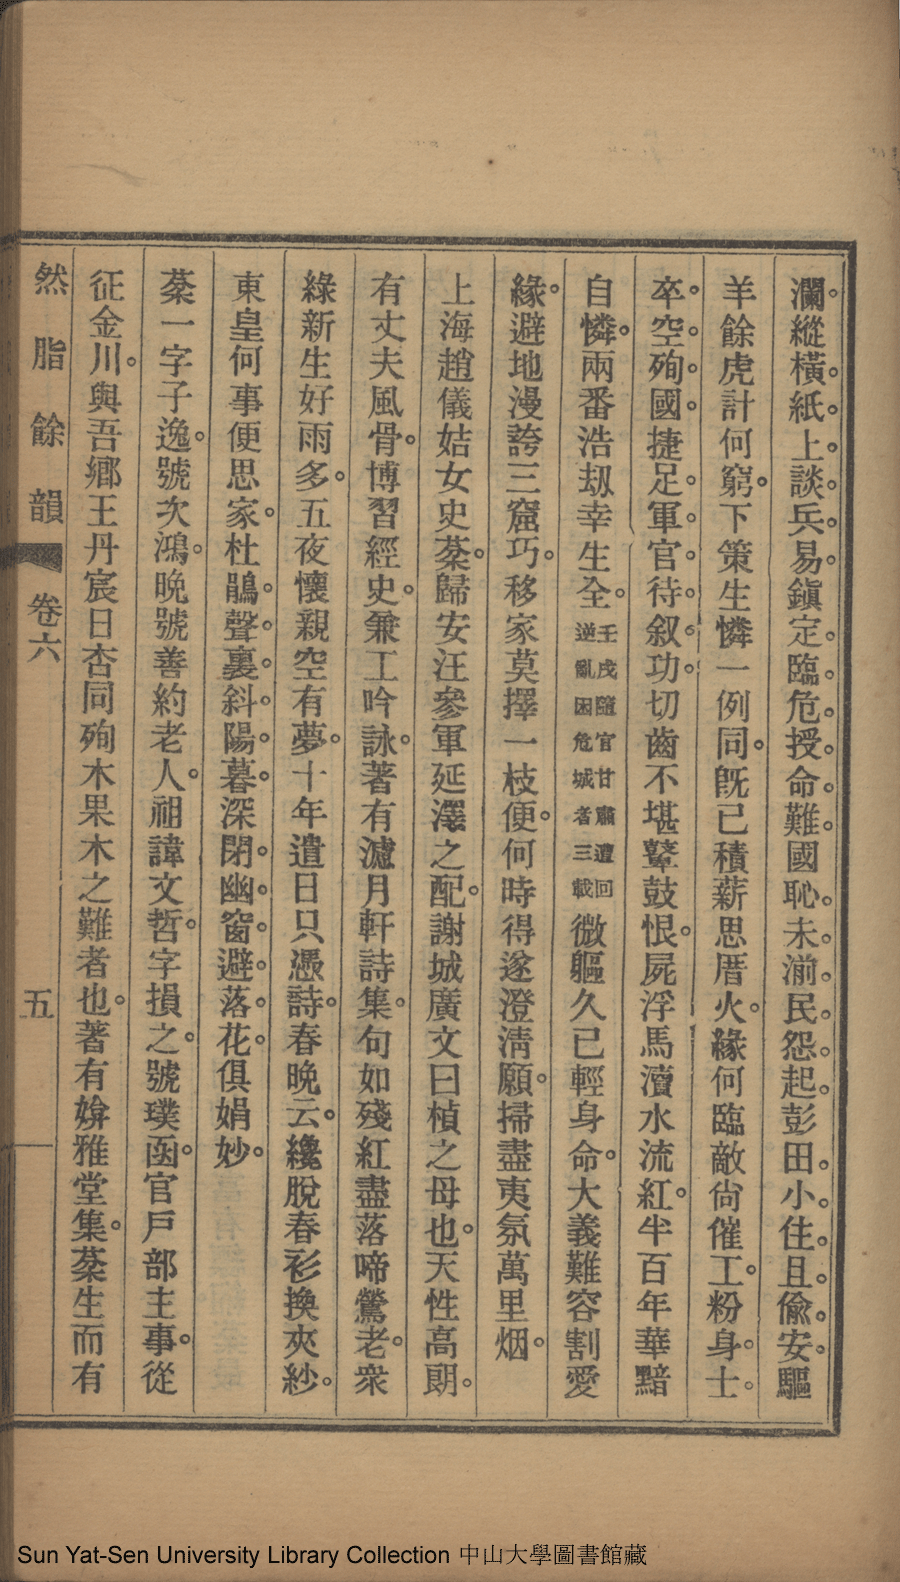 瀾縱橫紙上談兵易鎭定臨危授命難國恥未湔民怨起彭田小住且偸安驅
羊餘虎計何窮下策生憐一例同旣已積薪思厝火緣何臨敵尙催工粉身士
卒空殉國捷足軍官待叙功切齒不堪鼙鼓恨屍浮馬瀆水流紅半百年華黯
自憐兩番浩刼幸生全壬戌隨官甘肅遭回逆亂困危城者三載微軀久已輕身命大義難容割愛
緣避地漫誇三窟巧移家莫擇一枝便何時得遂澄淸願掃盡夷氛萬里烟
上海趙儀姞女史棻歸安汪參軍延澤之配謝城廣文曰楨之母也天性高朗
有丈夫風骨博習經史兼工吟詠著有濾月軒詩集句如殘紅盡落啼鶯老衆
綠新生好雨多五夜懷親空有夢十年遣日只憑詩春晚云纔脫春衫換夾紗
東皇何事便思家杜鵑聲裏斜陽暮深閉幽窗避落花俱娟妙
棻一字子逸號次鴻晚號善約老人祖諱文哲字損之號璞函官戶部主事從
征金川與吾鄕王丹宸日杏同殉木果木之難者也著有媕雅堂集棻生而有
然脂餘韻 卷六 五
Sun Yat-Sen University Library Collection 中山大學圖書館藏